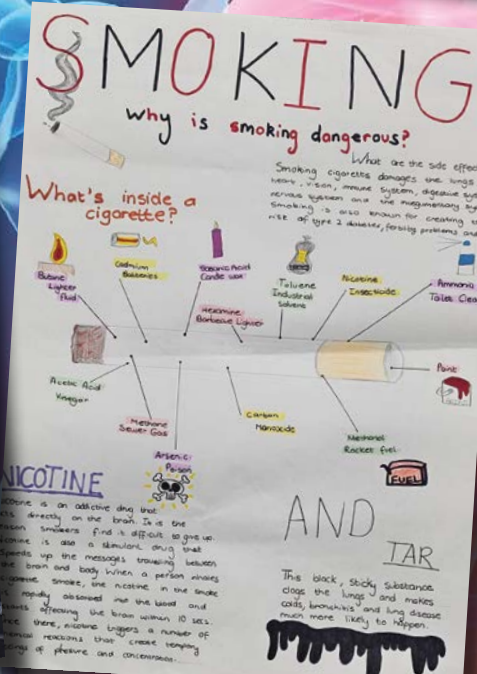 SMOKING
Why is smoking dangerous?
What are the side effec
Smoking cigarettes damages the lungs
heart, vision, immune system, digestive sys
nervous system and the integumentary sy
Smoking is also known for creating
rise of type 2 diabetes, fertility problems and
What's inside a
cigarette?
Butane
Lighter
fluid
Cadmium
Batteries
Stearic Acid
Candle wax
Hexamine
Barbecue Lighter
Toluene
Industrial
Solvent
Nicotine
Insecticide
Ammonia
Toilet Clea
Acetic Acid
Vinegar
Methane
Sewer Gas
Arsenic
Poison
Carbon
Monoxide
Methanol
Rocket Fuel
Paint
FUEL
NICOTINE
icotine is an addictive drug that
cts directly on the brain. It is the
eason smokers find it difficult to give up.
icotine is also a stimulant drug that
speeds up the messages travelling between
the brain and body. When a person inhales
cigarette smoke, the nicotine in the smoke
is rapidly absorbed into the blood and
starts affecting the brain within 10 secs.
nce there, nicotine triggers a number of
hemical reactions that create temporary
feelings of and concentration.
AND
TAR
This black, sticky substance
clogs the lungs and makes
colds, bronchitis and lung disease
much more likely to happen.